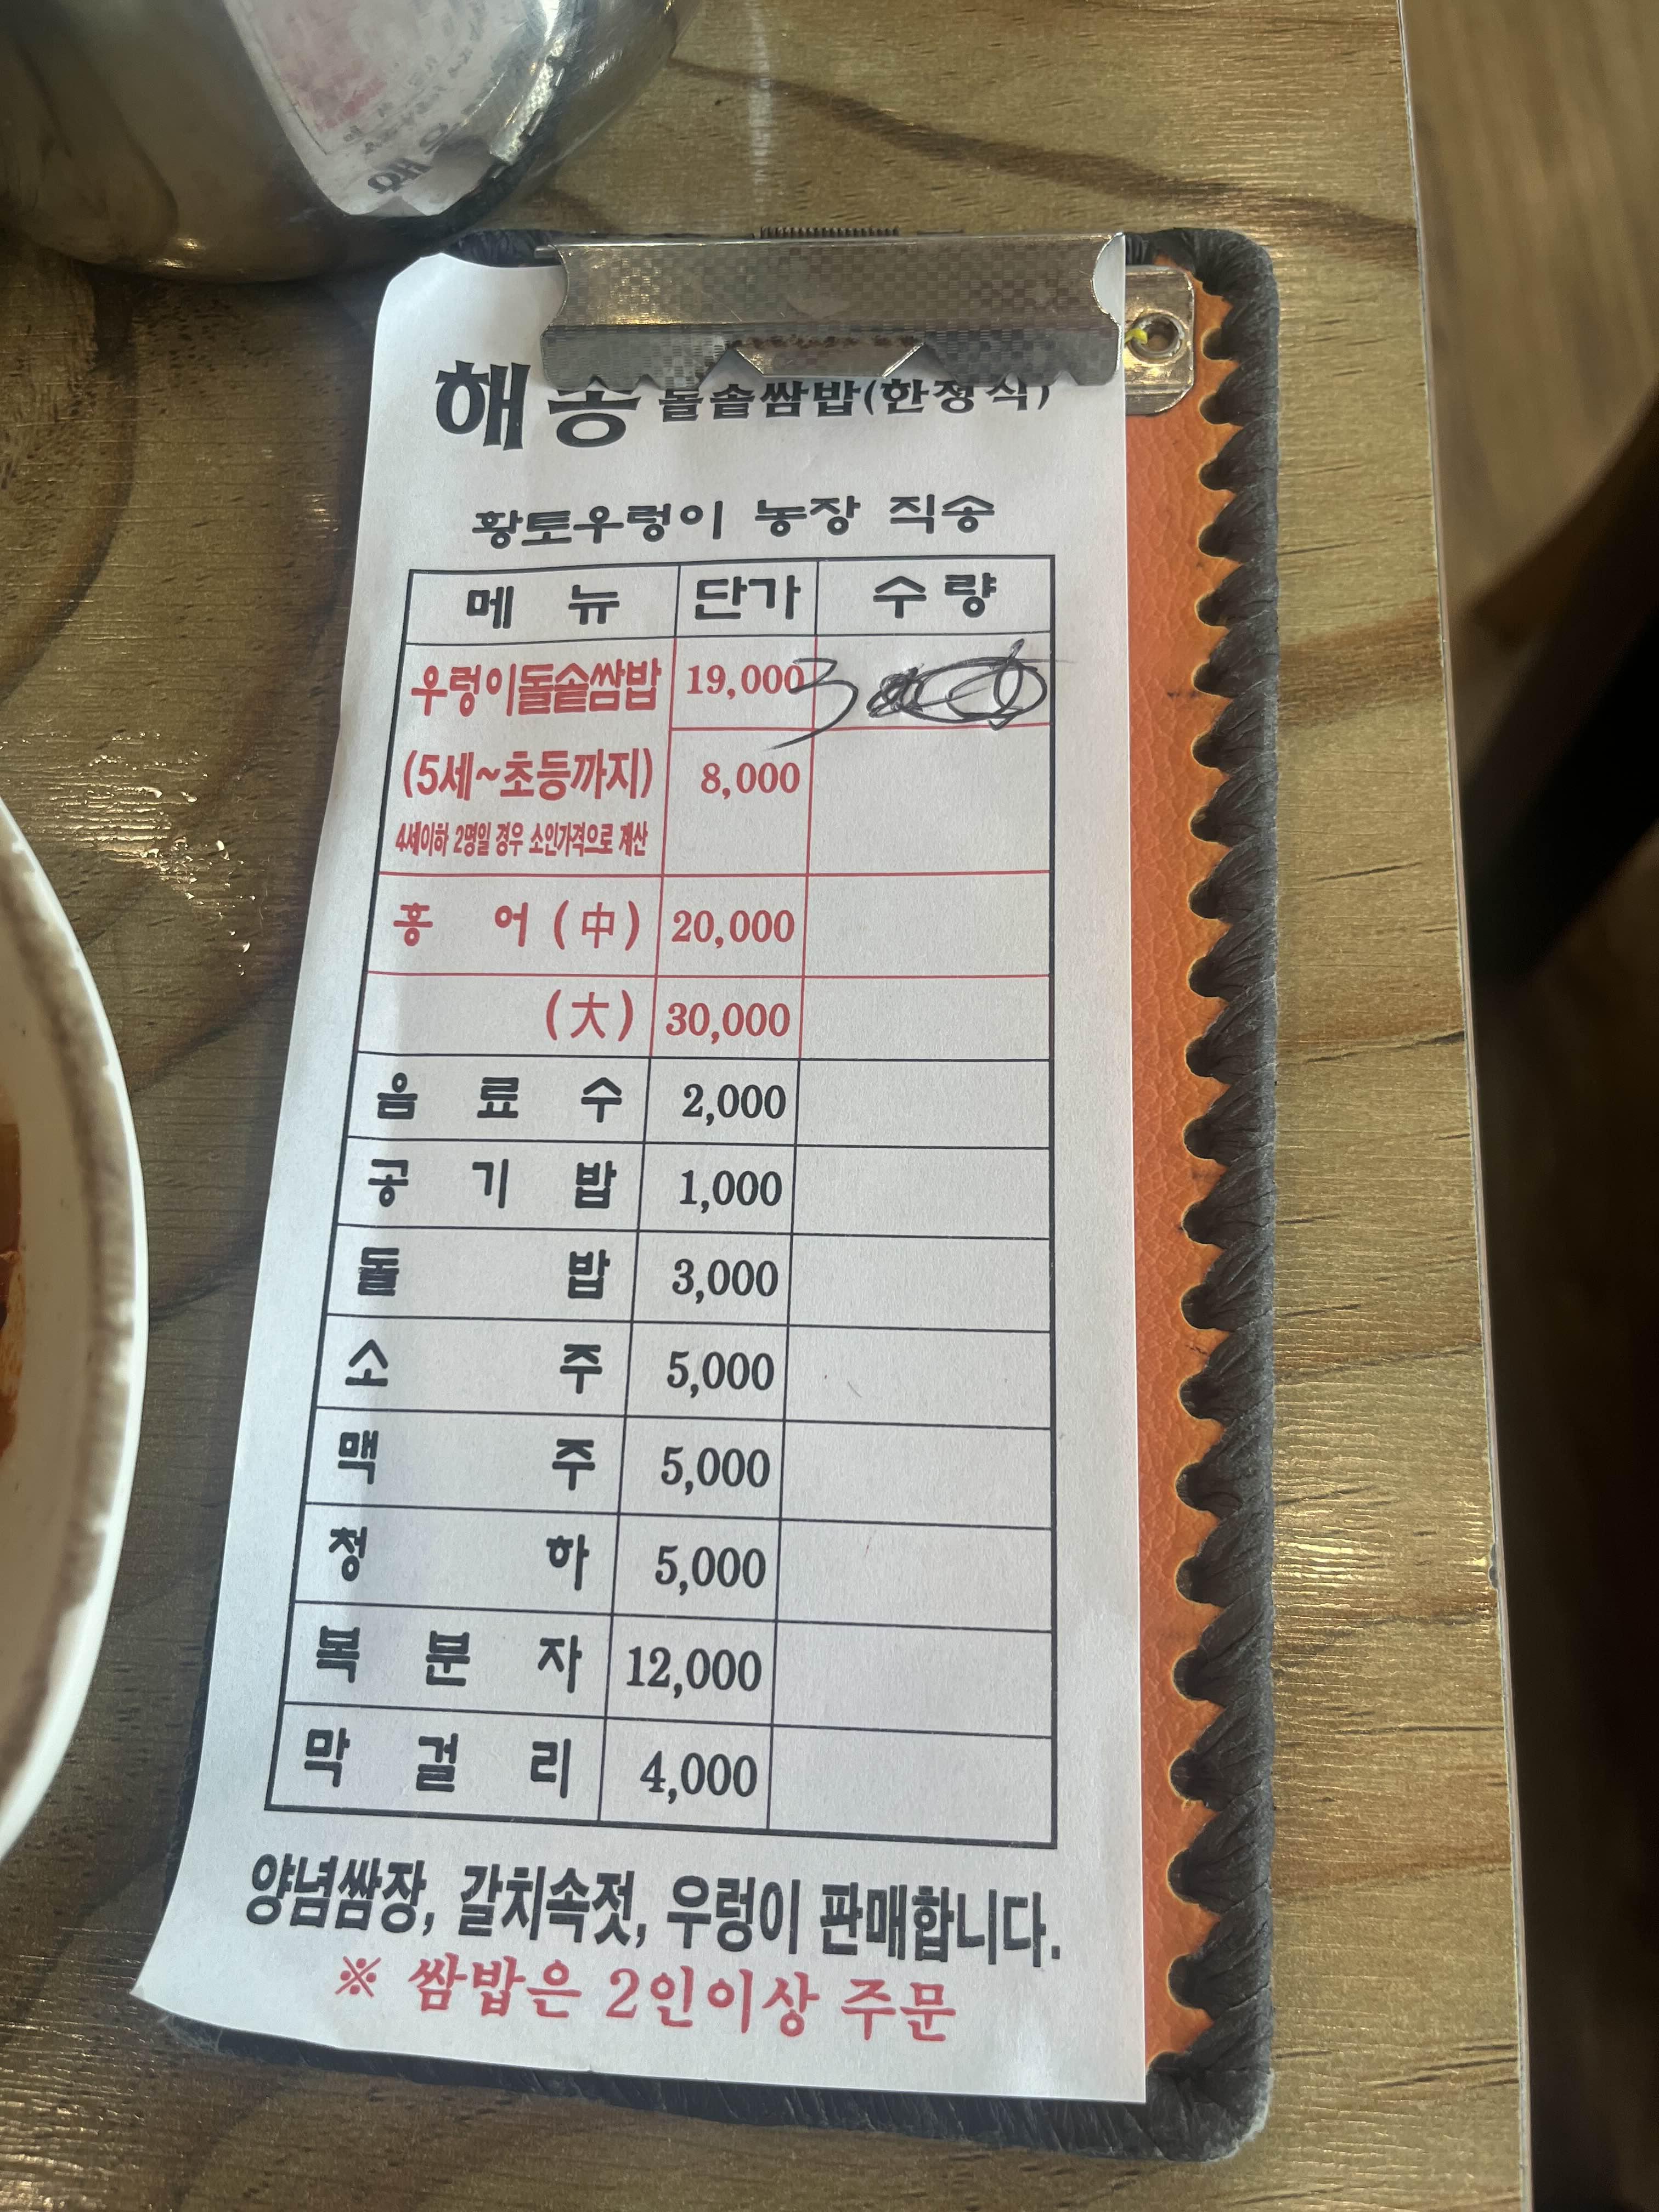 해송 돌솥쌈밥(한정식)
황토우렁이 농장 직송
메 뉴 단가 수량
우렁이돌솥쌈밥 19,000 3
(5세~초등까지) 8,000
4세이하 2명일 경우 소인가격으로 계산
홍 어 (中) 20,000
(大) 30,000
음 료 수 2,000
공 기 밥 1,000
돌 밥 3,000
소 주 5,000
맥 주 5,000
청 하 5,000
복 분 자 12,000
막 걸 리 4,000
양념쌈장, 갈치속젓, 우렁이 판매합니다.
※ 쌈밥은 2인이상 주문